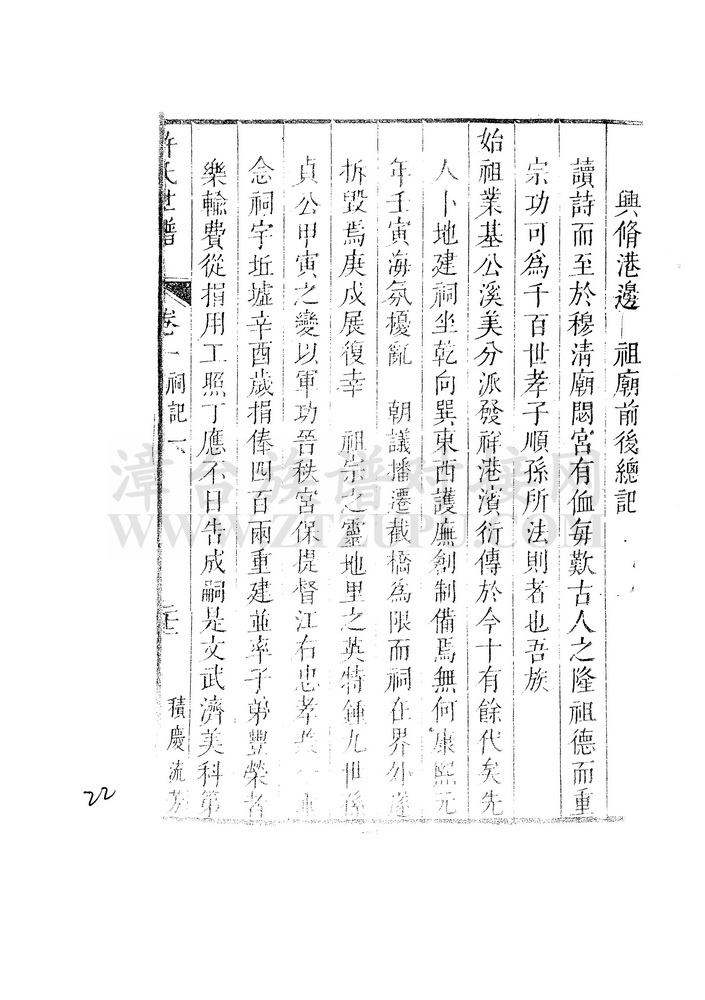 興脩港邊 祖廟前後總記
讀詩而至於穆清廟閟宮有侐每歎古人之隆祖德而重
宗功可為千百世孝子順孫所法則者也吾族
始祖業基公溪美分派發祥港濱衍傳於今十有餘代矣先
人卜地建祠坐乾向巽東西護廡創制備焉無何康熙元
年壬寅海氛擾亂 朝議播遷截橋為限而祠在界外遂
拆毀焉庚戌展復幸 祖宗之靈地里之英特鍾九世孫
貞公甲寅之變以軍功晉秩宮保提督江右忠孝
念祠宇坵墟辛酉歲捐俸四百兩重建並率子弟豐榮者
樂輸費從捐用工照丁應不日告成嗣是文武濟美科第
許氏世譜 卷一 祠記 積慶流芳
漳台族谱对接网
WWW.ZTZUPU.COM
22